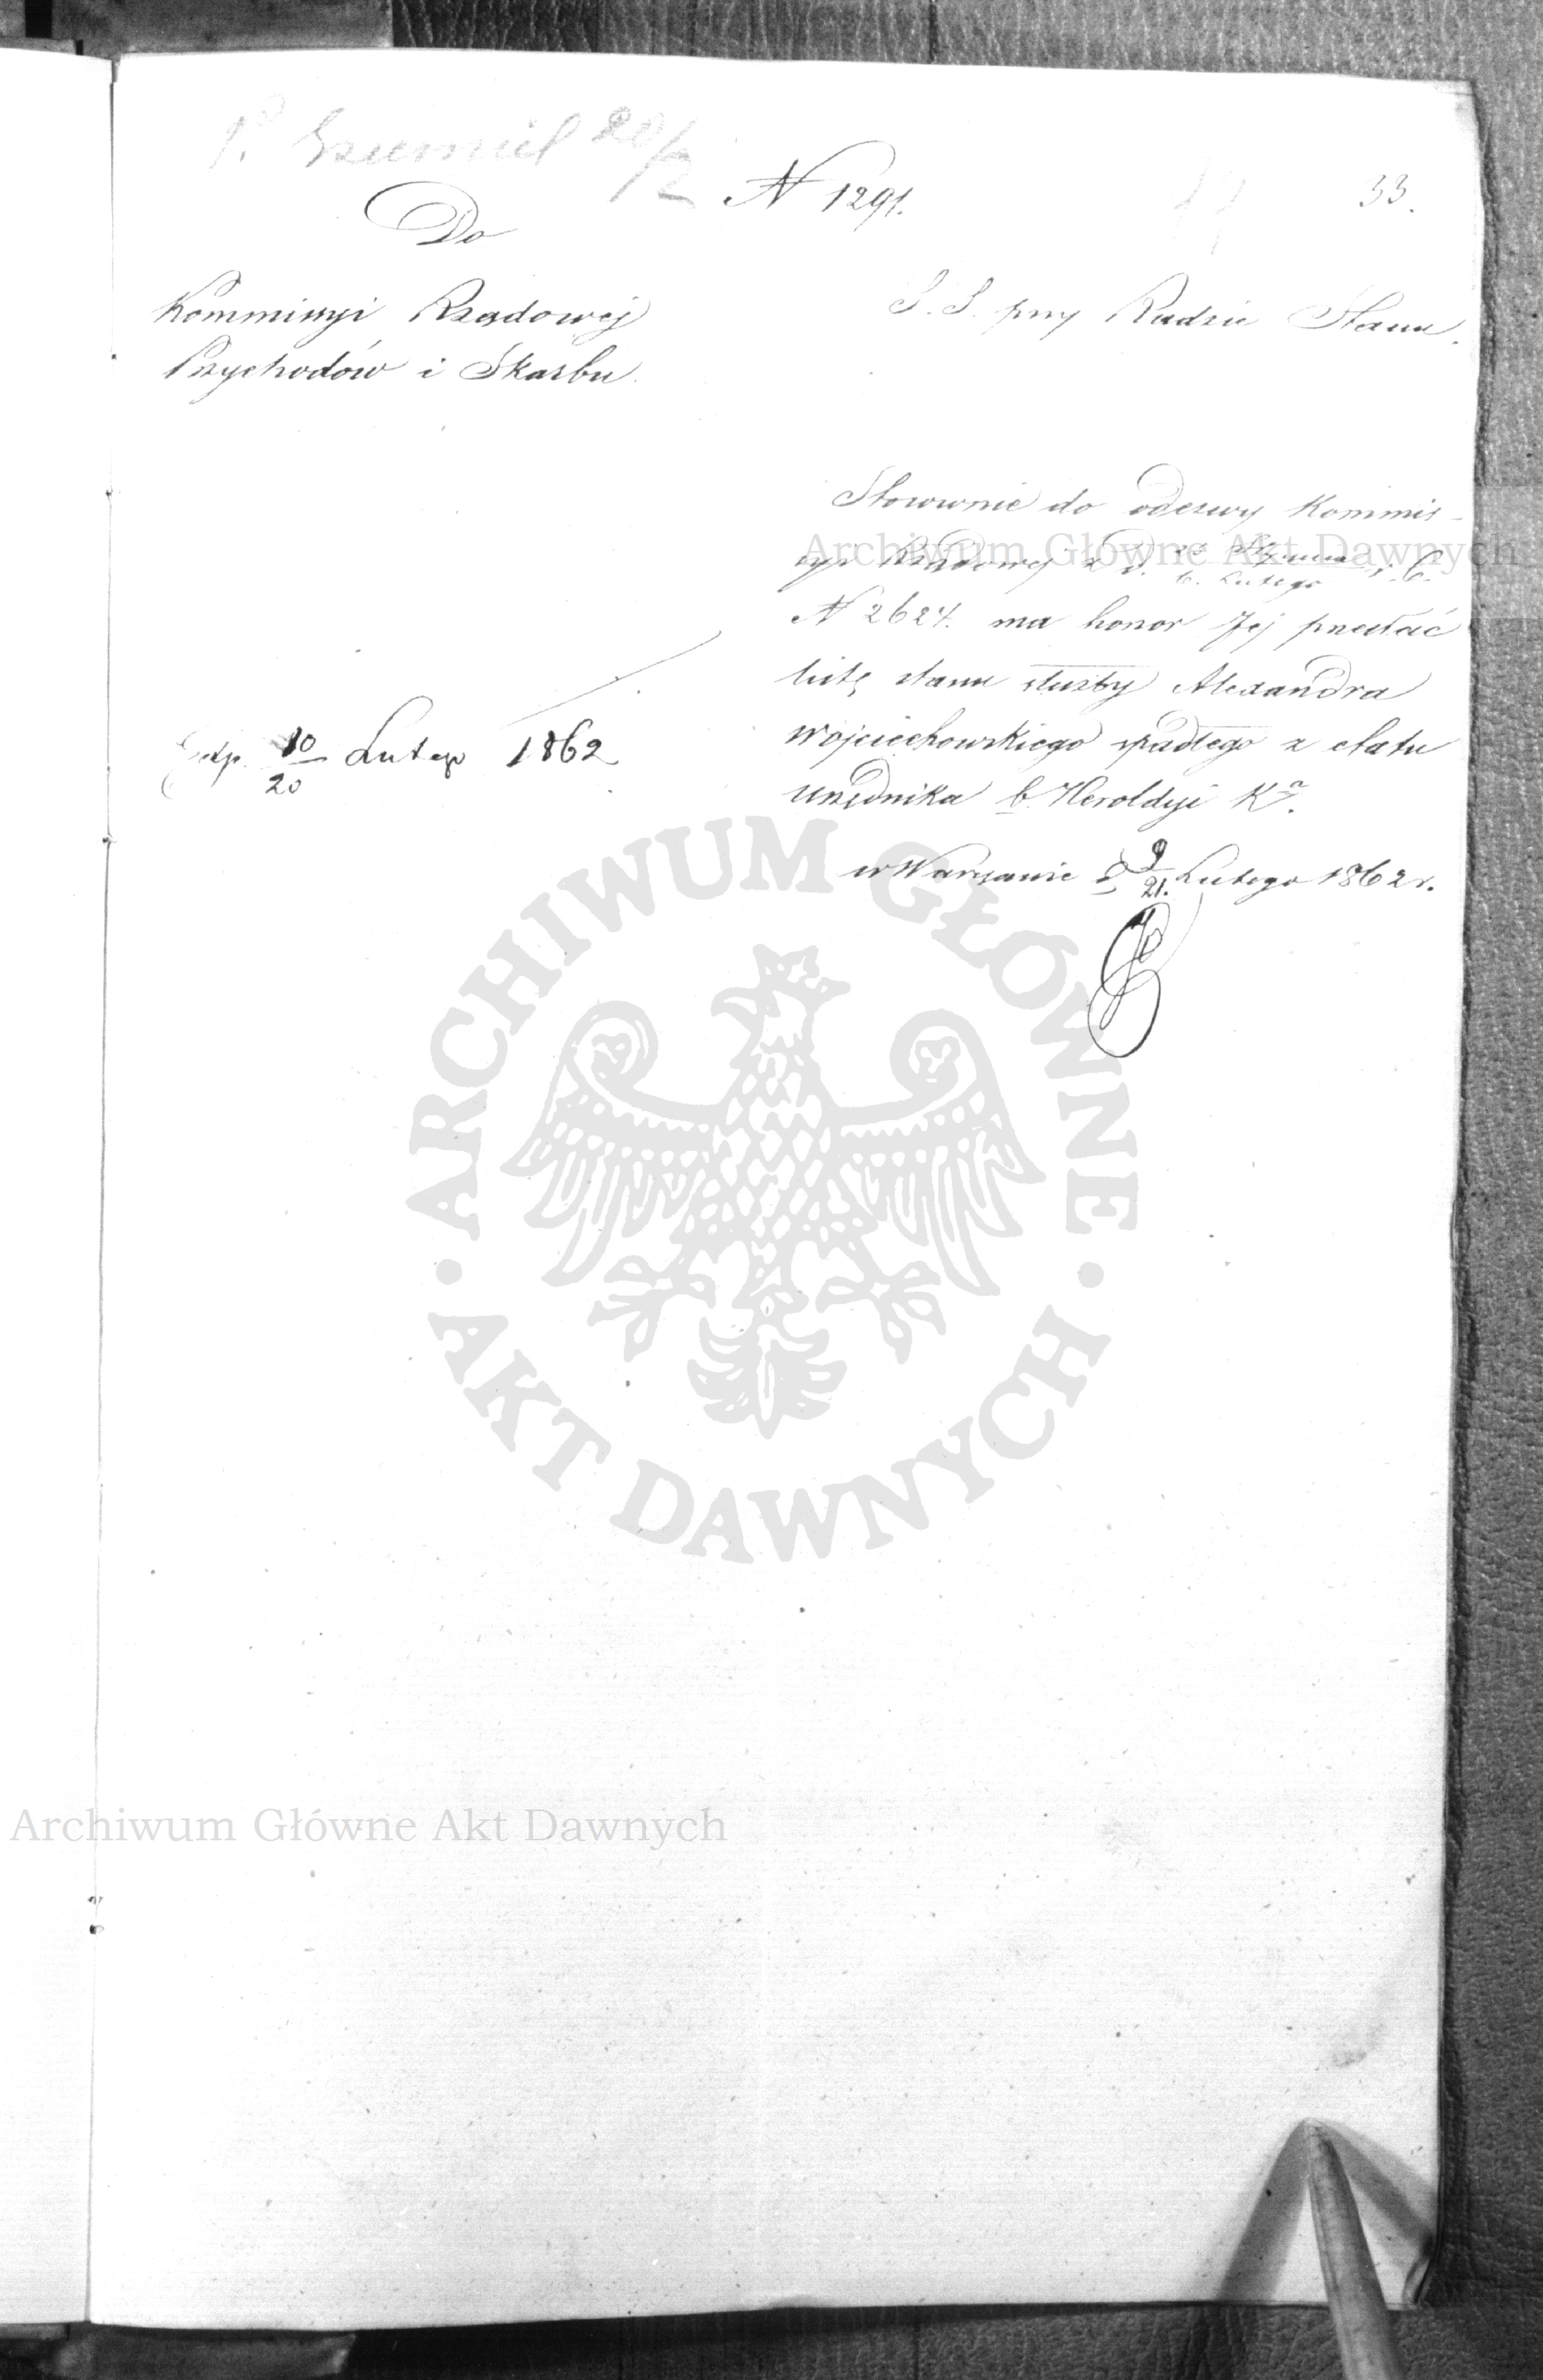 P. Szumiel 20/2
N 1291.
33.
Do
Kommissyi Rządowej
Przychodów i Skarbu.
S. S. przy Radzie Stanu.
Stosownie do odezwy Kommis-
syi Rządowej z d. 25 Stycznia / 6. Lutego r. b.
N 2624. ma honor Jej przesłać
listę stanu służby Alexandra
Wojciechowskiego spadłego z etatu
urzędnika b. Heroldyi Kr.
w Warszawie d. 9/21. Lutego 1862 r.
Exp. 10/20 Lutego 1862
Archiwum Główne Akt Dawnych
ARCHIWUM GŁÓWNE
AKT DAWNYCH
Archiwum Główne Akt Dawnych